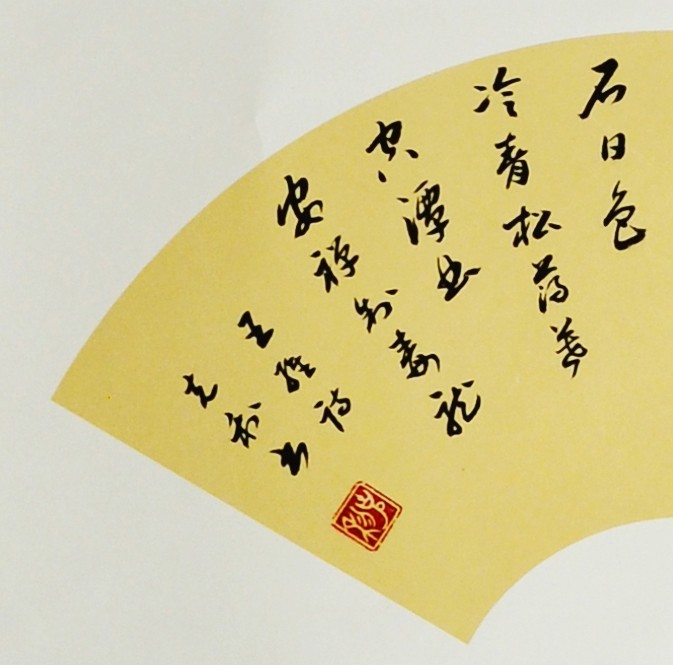 石日色
冷青松薄暮
空潭曲
安禅制毒龙
王维诗
书